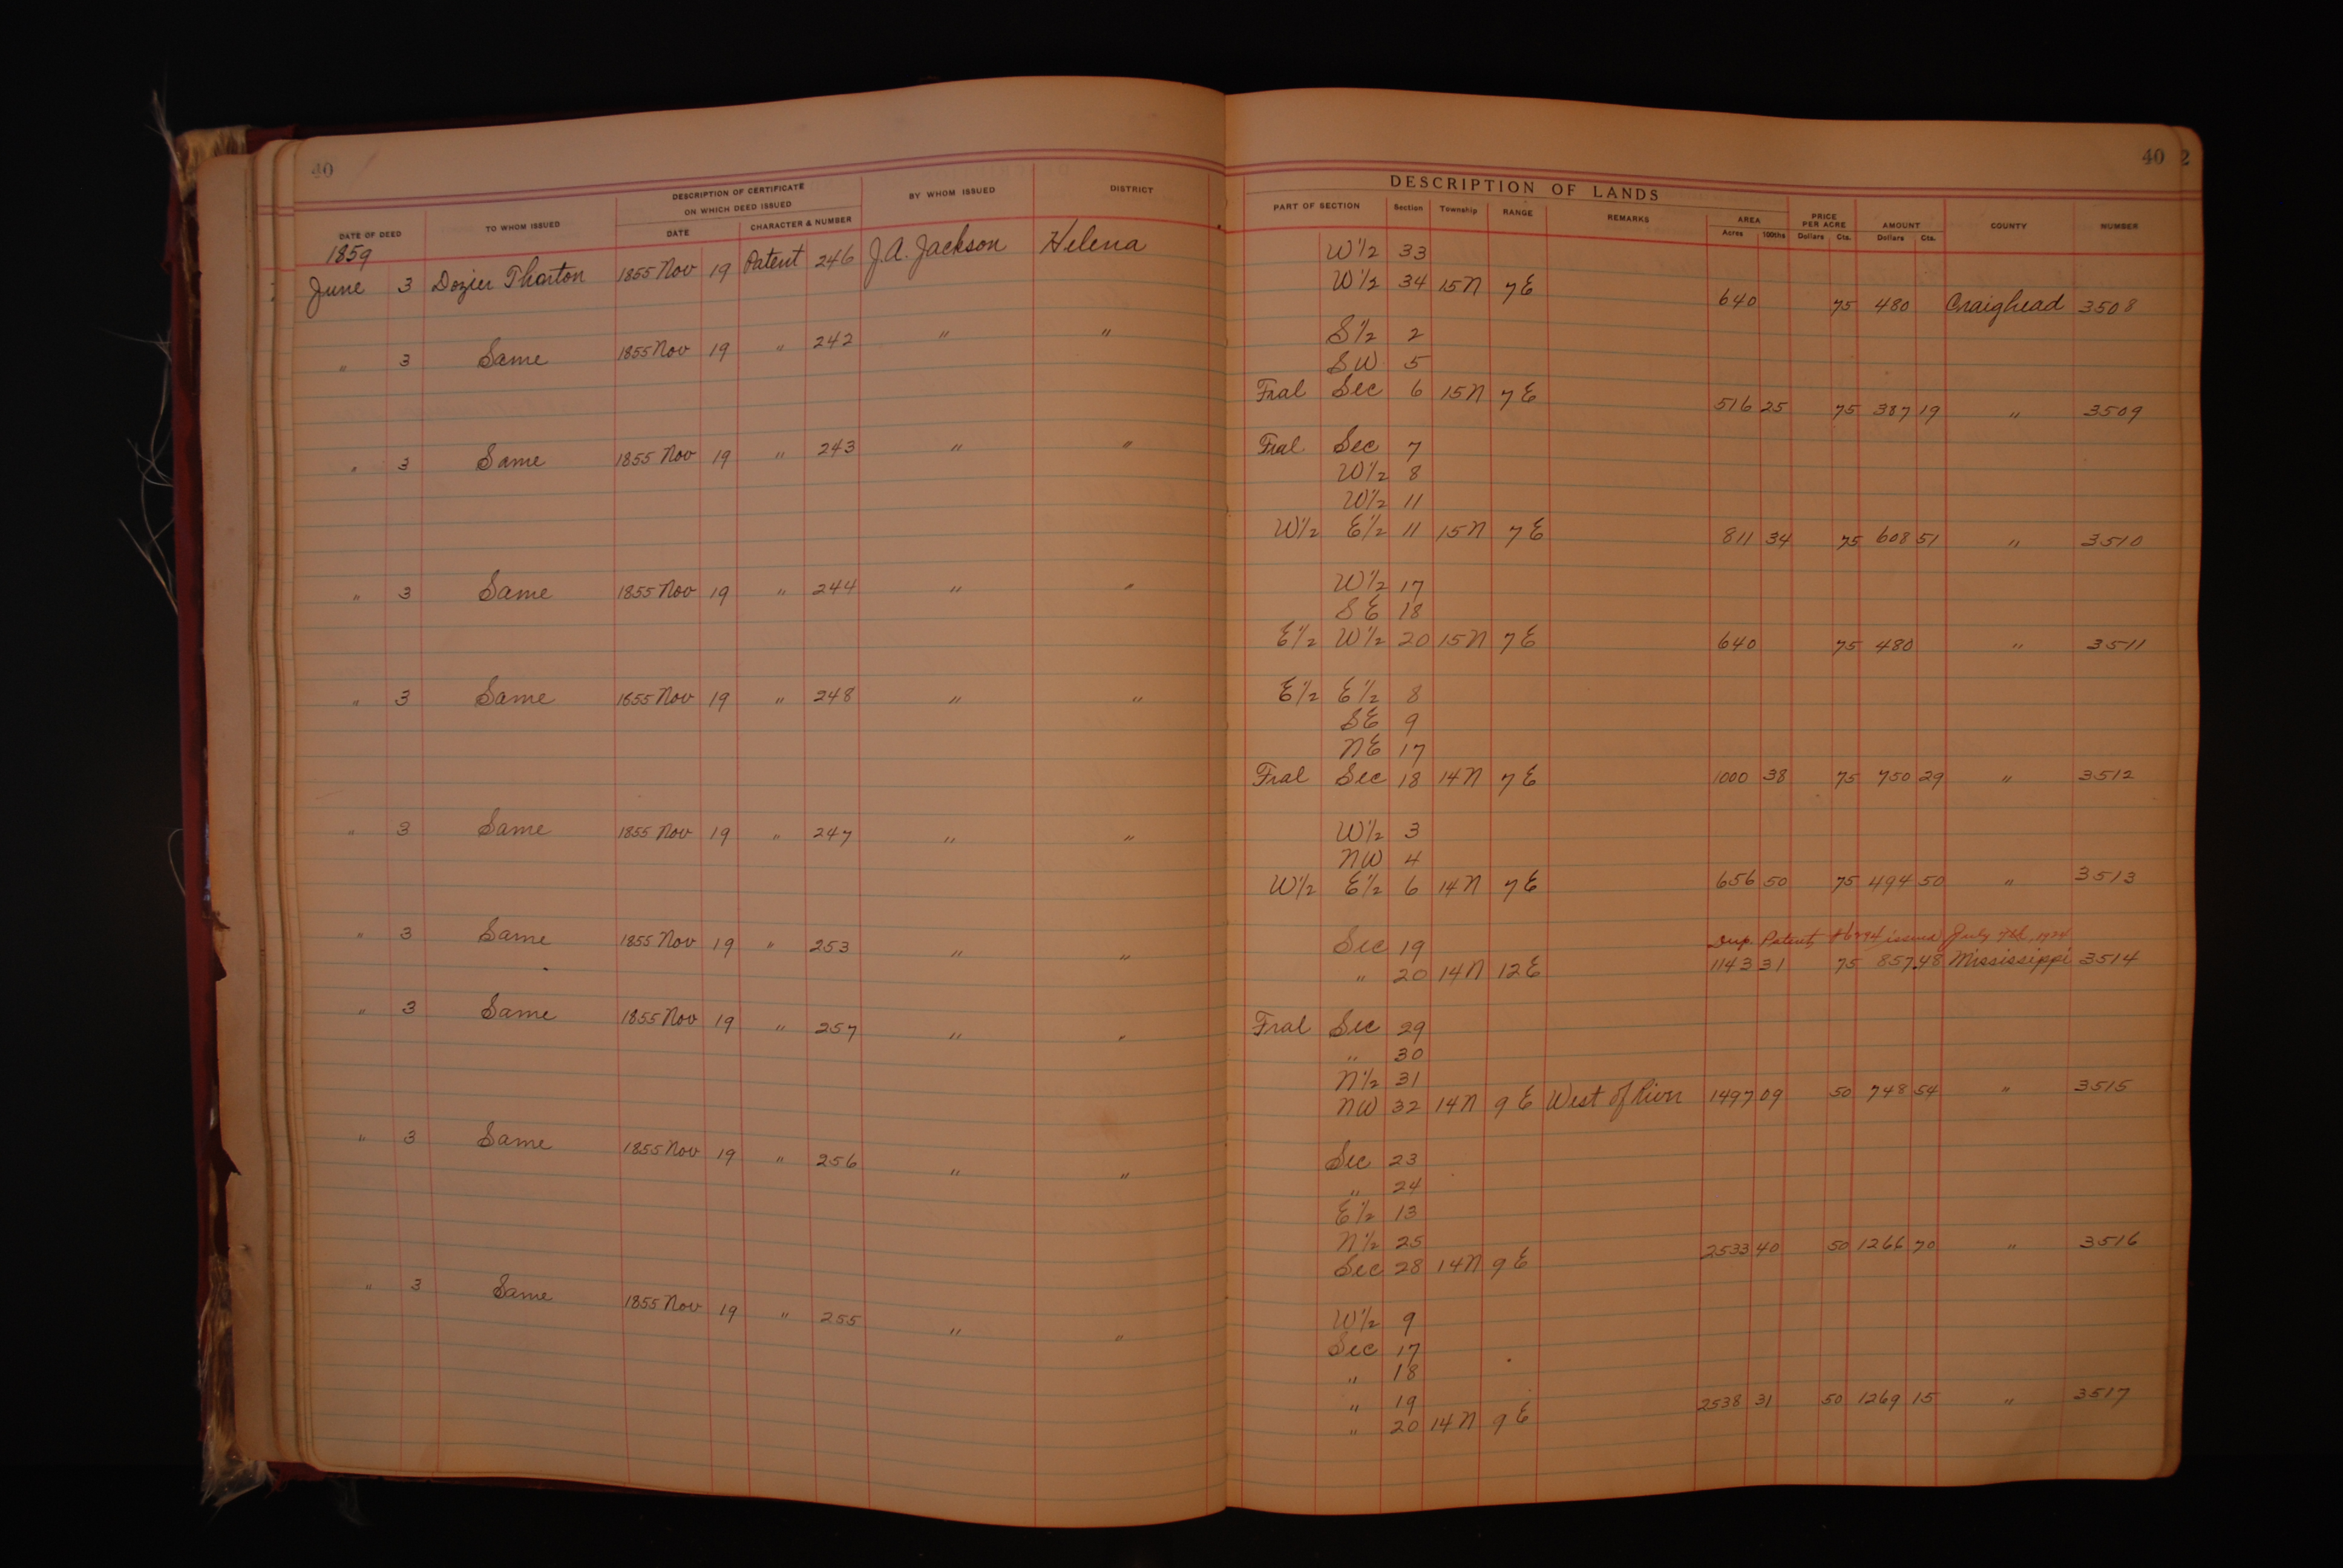 40
DESCRIPTION OF CERTIFICATE
ON WHICH DEED ISSUED
DATE OF DEED TO WHOM ISSUED DATE CHARACTER & NUMBER BY WHOM ISSUED DISTRICT
1859
June 3 Dozier Thorton 1855 Nov 19 Patent 246 J.A. Jackson Helena
" 3 Same 1855 Nov 19 " 242 " "
" 3 Same 1855 Nov 19 " 243 " "
" 3 Same 1855 Nov 19 " 244 " "
" 3 Same 1855 Nov 19 " 248 " "
" 3 Same 1855 Nov 19 " 247 " "
" 3 Same 1855 Nov 19 " 253 " "
" 3 Same 1855 Nov 19 " 257 " "
" 3 Same 1855 Nov 19 " 256 " "
" 3 Same 1855 Nov 19 " 255 " "
40 2
DESCRIPTION OF LANDS
PART OF SECTION Section Township RANGE REMARKS AREA PRICE PER ACRE AMOUNT COUNTY NUMBER
Acres 100ths Dollars Cts. Dollars Cts.
W 1/2 33
W 1/2 34 15 N 7 E 640 75 480 Craighead 3508
S 1/2 2
SW 5
Fral Sec 6 15 N 7 E 516 25 75 387 19 " 3509
Fral Sec 7
W 1/2 8
W 1/2 11
W 1/2 E 1/2 11 15 N 7 E 811 34 75 608 51 " 3510
W 1/2 17
S E 18
E 1/2 W 1/2 20 15 N 7 E 640 75 480 " 3511
E 1/2 E 1/2 8
SE 9
NE 17
Fral Sec 18 14 N 7 E 1000 38 75 750 29 " 3512
W 1/2 3
NW 4
W 1/2 E 1/2 6 14 N 7 E 656 50 75 494 50 " 3513
Dup. Patent issued July 7th,
Sec 19
" 20 14 N 12 E 1143 31 75 857.48 Mississippi 3514
Fral Sec 29
" 30
N 1/2 31
NW 32 14 N 9 E West of River 1497 09 50 748 54 " 3515
Sec 23
" 24
E 1/2 13
N 1/2 25
Sec 28 14 N 9 E 2533 40 50 1266 70 " 3516
W 1/2 9
Sec 17
" 18
" 19
" 20 14 N 9 E 2538 31 50 1269 15 " 3517